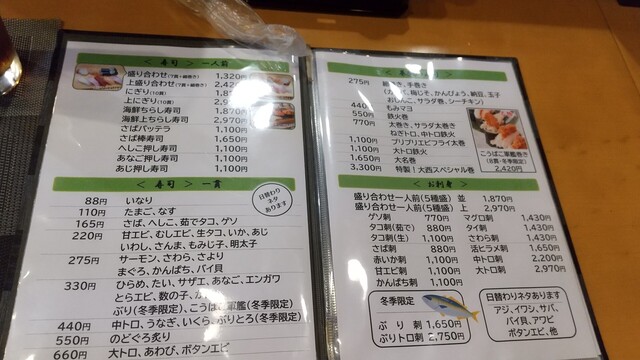 ＜ 寿司 ＞ 一人前
盛り合わせ(7貫+細巻き) 1,320円
上盛り合わせ(7貫+細巻き) 2,420
にぎり(10貫)
上にぎり(10貫)
海鮮ちらし寿司 1,870円
海鮮上ちらし寿司 2,970円
さばバッテラ 1,100円
さば棒寿司 1,650円
へしこ押し寿司 1,100円
あなご押し寿司 1,100円
あじ押し寿司 1,100円
＜ 寿司 ＞ 一貫
日替わり
ネタ
あります
88円 いなり
110円 たまご、なす
165円 さば、へしこ、茹でタコ、ゲソ
220円 甘エビ、むしエビ、生タコ、いか、あじ
いわし、さんま、もみじ子、明太子
275円 サーモン、さわら、さより
まぐろ、かんぱち、バイ貝
330円 ひらめ、たい、サザエ、あなご、エンガワ
とらエビ、数の子、
ぶり(冬季限定)、こうばこ軍艦(冬季限定)
440円 中トロ、うなぎ、いくら、ぶりとろ(冬季限定)
550円 のどぐろ炙り
660円 大トロ、あわび、ボタンエビ
275円 細巻き、手巻き
梅じそ、かんぴょう、納豆、玉子
おしんこ、サラダ巻、シーチキン)
440 もみマヨ
550円 鉄火巻
770円 太巻き、サラダ太巻き
ねぎトロ、中トロ鉄火巻
1,100円 プリプリエビフライ太巻
1,100円 大トロ鉄火巻
1,650円 大名巻
3,300円 特製！大西スペシャル巻
こうばこ軍艦巻き
(8貫・冬季限定)
2,420円
＜ お刺身 ＞
盛り合わせ一人前(5種盛) 並 1,870円
盛り合わせ一人前(5種盛) 上 2,970円
ゲソ刺 770円 マグロ刺 1,430円
タコ刺(茹で) 880円 タイ刺 1,430円
タコ刺(生) 1,100円 さわら刺 1,430円
さば刺 880円 活ヒラメ刺 1,650円
赤いか刺 1,100円 中トロ刺 2,200円
甘エビ刺 1,100円 大トロ刺 2,970円
かんぱち刺 1,100円
冬季限定
ぶり刺 1,650円
ぶりトロ刺 2,750円
日替わりネタあります
アジ、イワシ、サバ、
バイ貝、アワビ
ボタンエビ、他